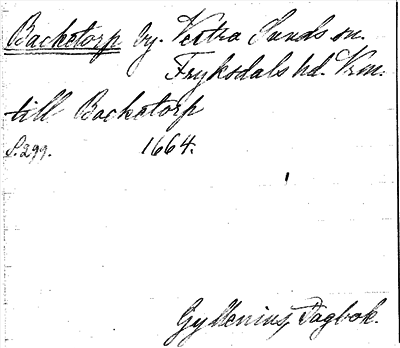 Backetorp by. Vestra Sunds sn.
Fryksdals hd. Vrm.
till Backetorp
S. 299. 1664.
Gyllenius, Dagbok.